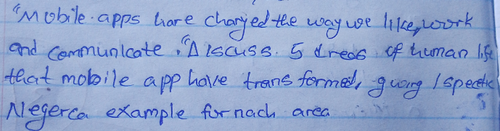 "Mobile apps have changed the way we like, work
and communicate." Discuss 5 areas of human life
that mobile app have transformed, giving 1 specific
Negerca example for nach area